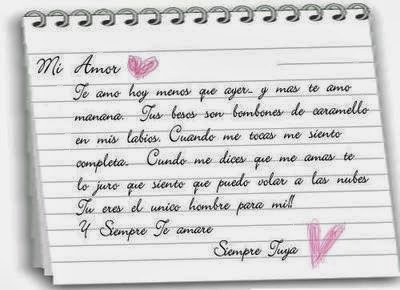 Mi Amor
Te amo hoy menos que ayer.. y mas te amo
manana. Tus besos son bombones de caramello
en mis labios. Cuando me tocas me siento
completa. Cundo me dices que me amas te
lo juro que siento que puedo volar a las nubes
Tu eres el unico hombre para mi!!
Y Siempre Te amare
Siempre Tuya